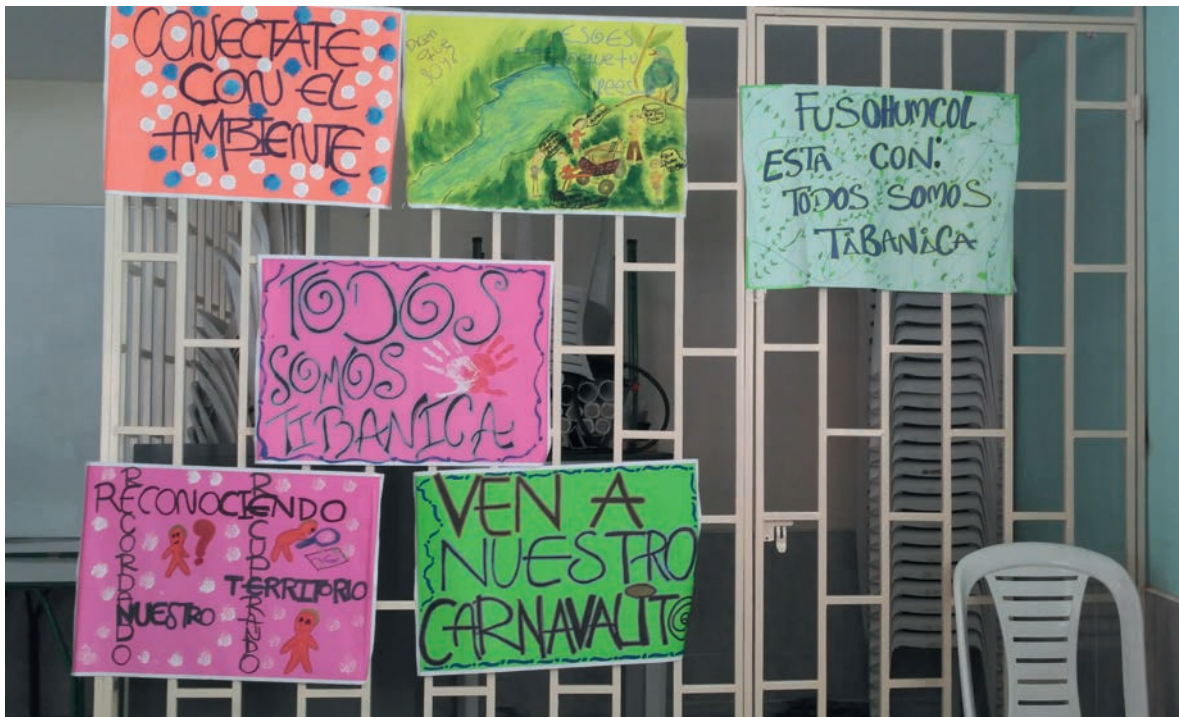 CONECTATE
CON EL
AMBIENTE
Dicen
que
ESGES
porque tu
FUSOHUMCOL
ESTA CON:
TODOS SOMOS
TIBANICA
TODOS
SOMOS
TIBANICA
RECONOCIENDO
RECORDANDO
RECUPERANDO
NUESTRO TERRITORIO
VEN A
NUESTRO
CARNAVALITO